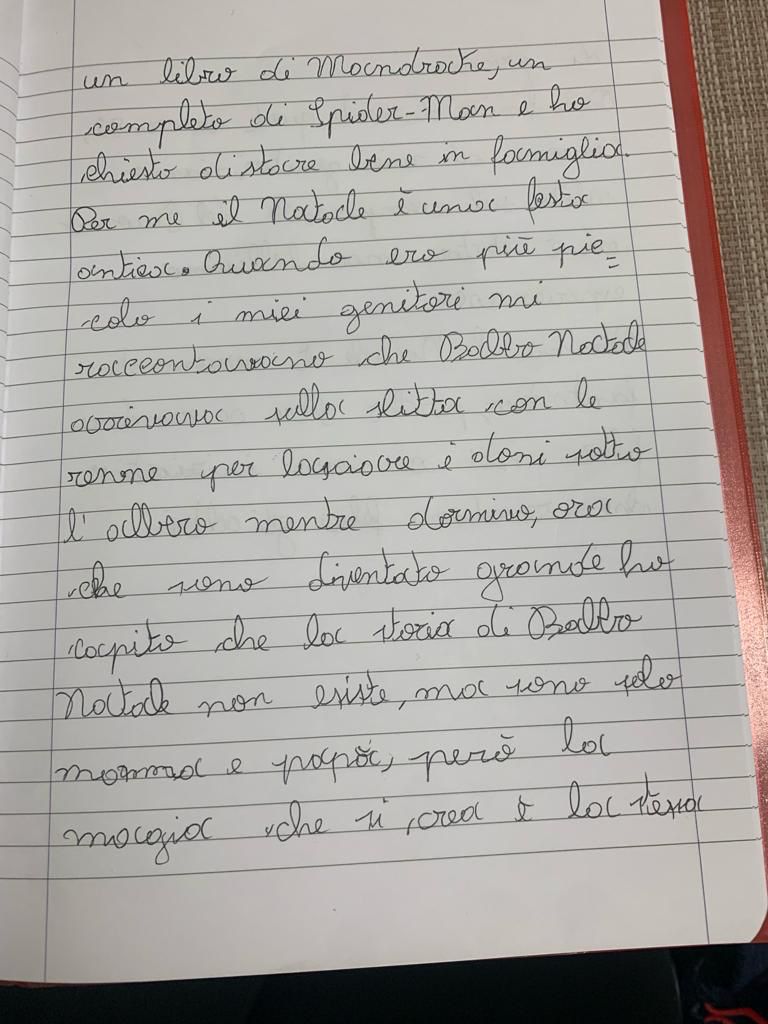 un libro di Mandrake, un
completo di Spider-Man e ho
chiesto di stare bene in famiglia.
Per me il Natale è una festa
antica. Quando ero più pic=
colo i miei genitori mi
raccontavano che Babbo Natale
arrivava sulla slitta con le
renne per lasciare i doni sotto
l'albero mentre dormivo, ora
che sono diventato grande ho
capito che la storia di Babbo
Natale non esiste, ma sono solo
mamma e papà, però la
magia che si crea è la stessa